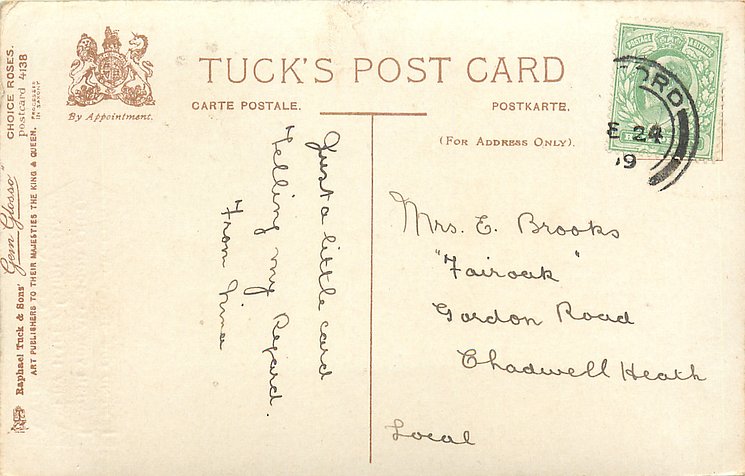 TUCK'S POST CARD
CARTE POSTALE.
POSTKARTE.
(FOR ADDRESS ONLY).
By Appointment.
CHOICE ROSES.
postcard 4138
PROCESSED
IN SAXONY.
Raphael Tuck & Sons' "Gem Glosso"
ART PUBLISHERS TO THEIR MAJESTIES THE KING & QUEEN.
Just a little card
Telling my Regard.
From Nina
Mrs. E. Brooks
"Fairoak"
Gordon Road
Chadwell Heath
Local
FORD
E 24
09
POSTAGE